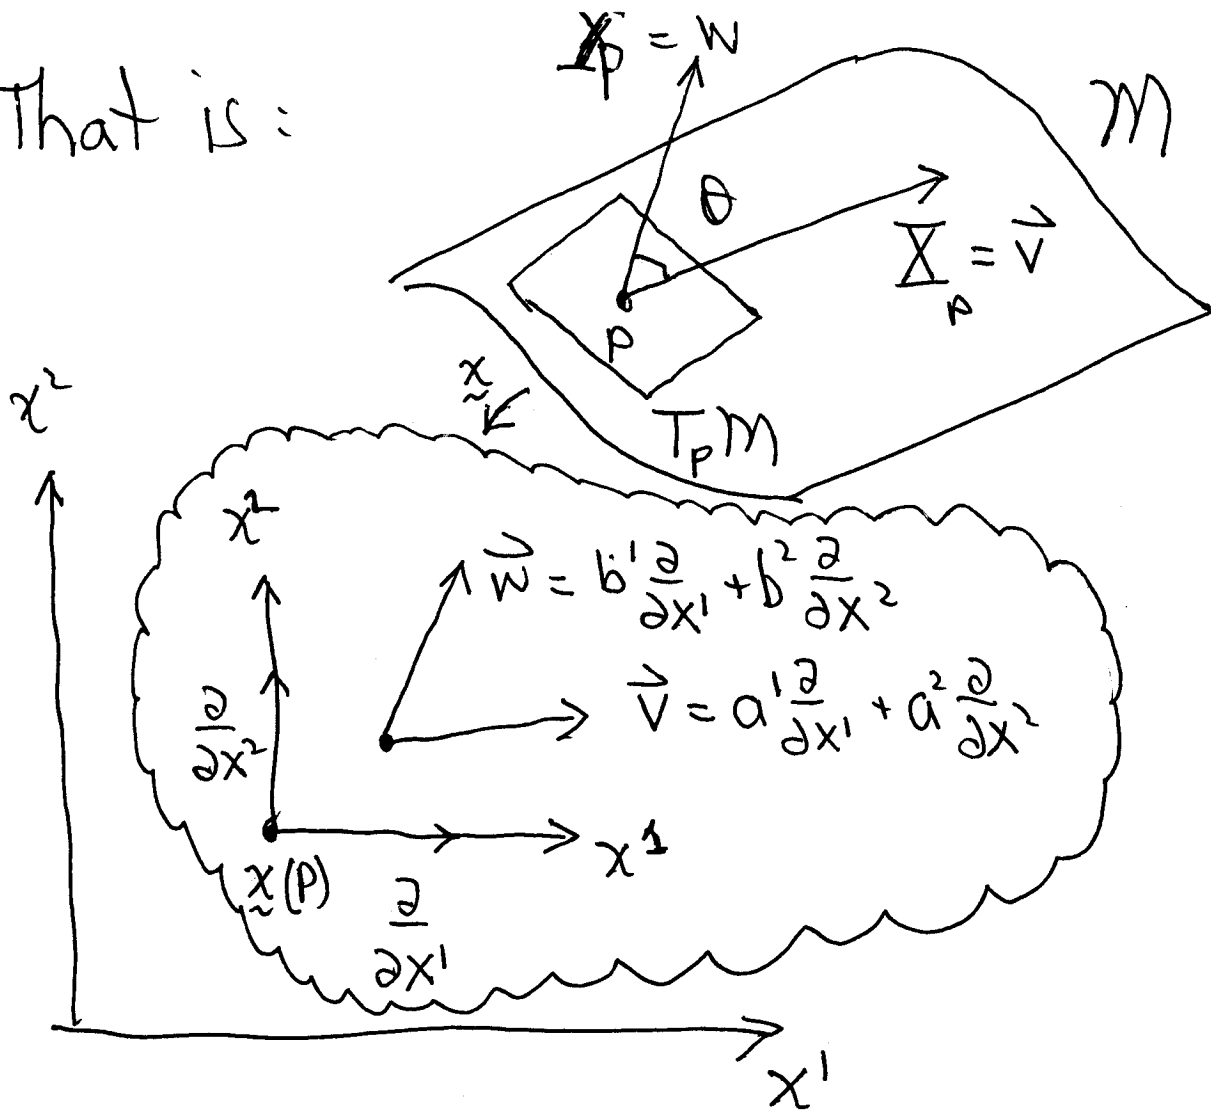 That is:
Y_p = w
M
θ
X_p = \vec{v}
p
T_p M
x̰
x^2
x^2
\vec{w} = b^1 ∂/∂x^1 + b^2 ∂/∂x^2
\vec{v} = a^1 ∂/∂x^1 + a^2 ∂/∂x^2
∂/∂x^2
x^1
x̰(p)
∂/∂x^1
x^1